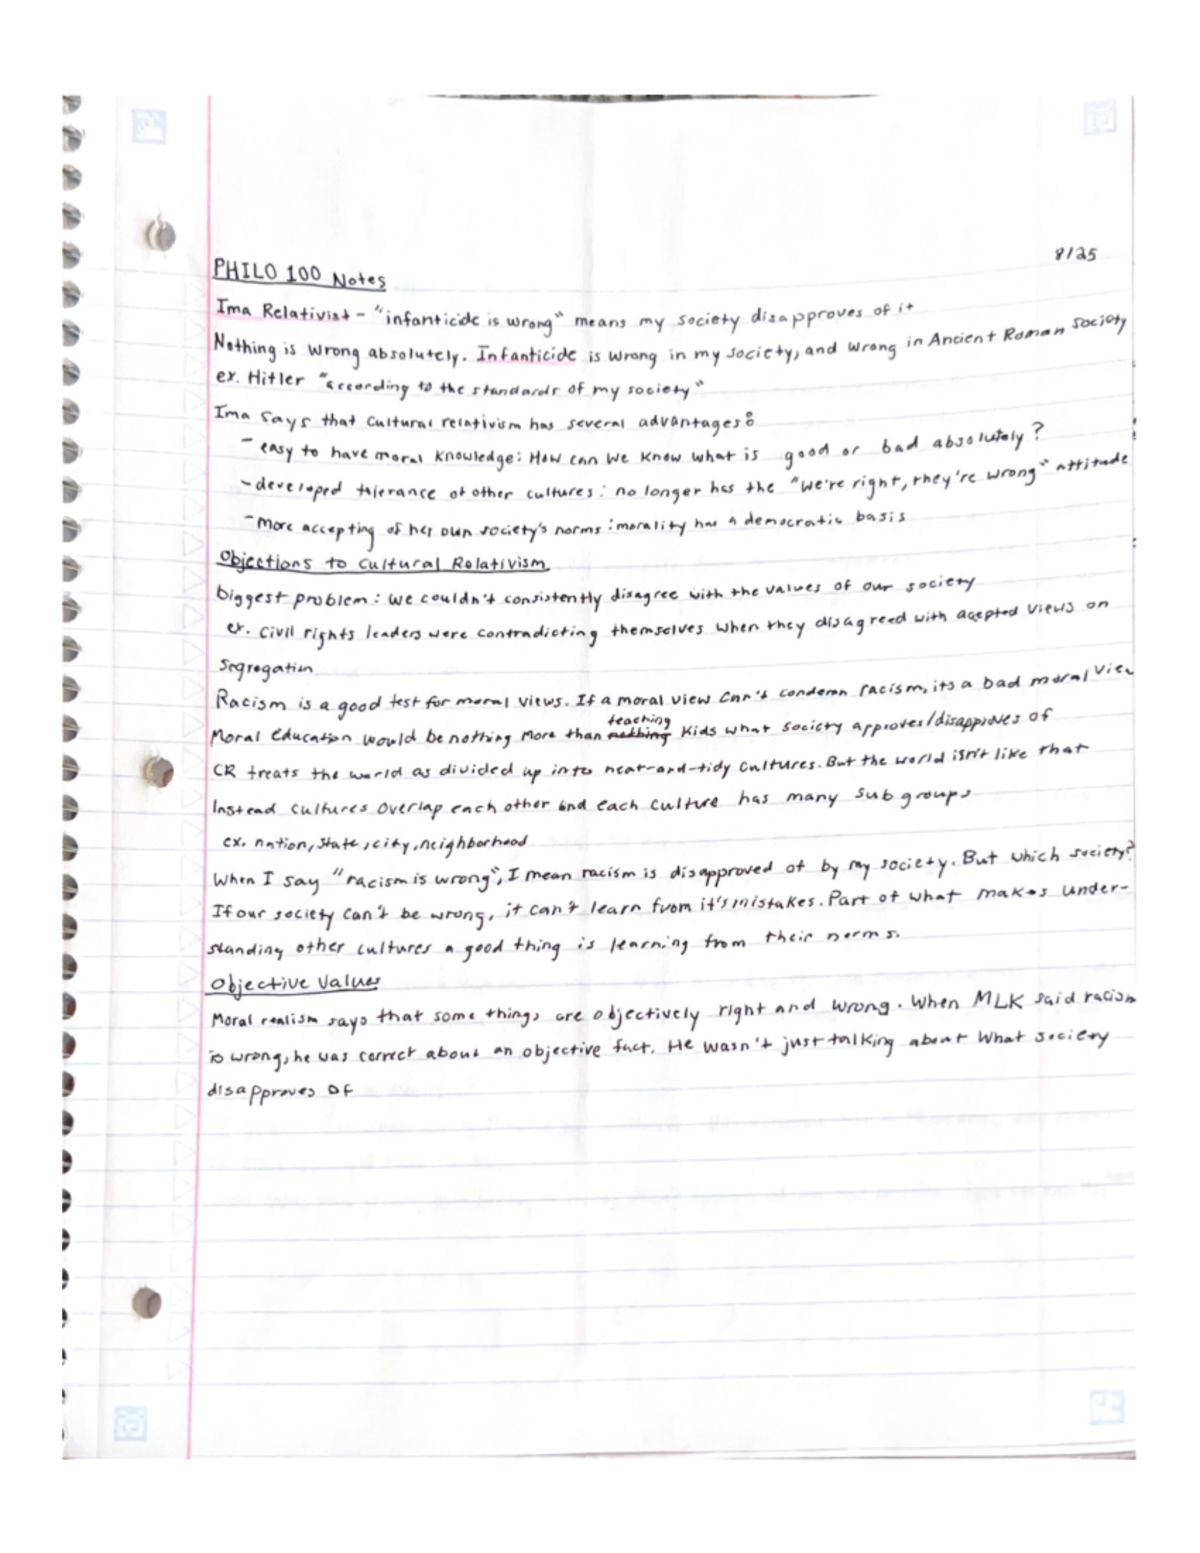 8/25
PHILO 100 Notes
Ima Relativist - "infanticide is wrong" means my society disapproves of it
Nothing is wrong absolutely. Infanticide is wrong in my society, and wrong in Ancient Roman Society
ex. Hitler "according to the standards of my society"
Ima says that cultural relativism has several advantages:
- easy to have moral knowledge: How can we know what is good or bad absolutely?
- developed tolerance of other cultures: no longer has the "we're right, they're wrong" attitude
- more accepting of her own society's norms: morality has a democratic basis
Objections to Cultural Relativism
biggest problem: we couldn't consistently disagree with the values of our society
ex. civil rights leaders were contradicting themselves when they disagreed with accepted views on
segregation
Racism is a good test for moral views. If a moral view can't condemn racism, its a bad moral view
Moral education would be nothing more than teaching kids what society approves/disapproves of
CR treats the world as divided up into neat-and-tidy cultures. But the world isn't like that
Instead cultures overlap each other and each culture has many subgroups
ex. nation, state, city, neighborhood
When I say "racism is wrong", I mean racism is disapproved of by my society. But which society?
If our society can't be wrong, it can't learn from it's mistakes. Part of what makes under-
standing other cultures a good thing is learning from their norms.
Objective Values
Moral realism says that some things are objectively right and wrong. When MLK said racism
is wrong, he was correct about an objective fact. He wasn't just talking about what society
disapproves of